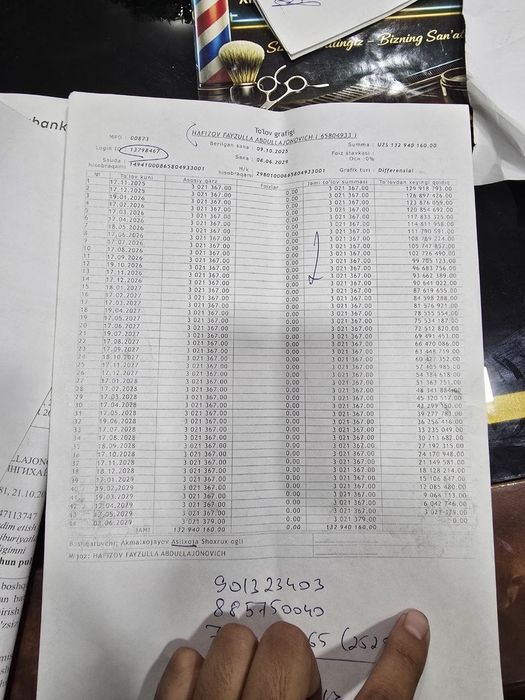 Bizning San'at
bank
To'lov grafigi
HAFIZOV FAYZULLA ABDULLAJONOVICH ( 65804933 )
MFO : 00873 Berilgan sana : 09.10.2025 Summa : UZS 132 940 160.00
Login ID 13798467 Sana : 06.06.2029 Foiz stavkasi :
Ssuda hisobraqami 14941000865804933001 H/k hisobraqami 29801000665804933001 Grafik turi : Differensial
№ To'lov kuni Asosiy qarz Foizlar Jami to'lov summasi To'lovdan keyingi qoldiq
1 17.11.2025 3 021 367.00 0.00 3 021 367.00 129 918 793.00
2 17.12.2025 3 021 367.00 0.00 3 021 367.00 126 897 426.00
3 19.01.2026 3 021 367.00 0.00 3 021 367.00 123 876 059.00
4 17.02.2026 3 021 367.00 0.00 3 021 367.00 120 854 692.00
5 17.03.2026 3 021 367.00 0.00 3 021 367.00 117 833 325.00
6 17.04.2026 3 021 367.00 0.00 3 021 367.00 114 811 958.00
7 18.05.2026 3 021 367.00 0.00 3 021 367.00 111 790 591.00
8 17.06.2026 3 021 367.00 0.00 3 021 367.00 108 769 224.00
9 17.07.2026 3 021 367.00 0.00 3 021 367.00 105 747 857.00
10 17.08.2026 3 021 367.00 0.00 3 021 367.00 102 726 490.00
11 17.09.2026 3 021 367.00 0.00 3 021 367.00 99 705 123.00
12 19.10.2026 3 021 367.00 0.00 3 021 367.00 96 683 756.00
13 17.11.2026 3 021 367.00 0.00 3 021 367.00 93 662 389.00
14 17.12.2026 3 021 367.00 0.00 3 021 367.00 90 641 022.00
15 18.01.2027 3 021 367.00 0.00 3 021 367.00 87 619 655.00
16 17.02.2027 3 021 367.00 0.00 3 021 367.00 84 598 288.00
17 17.03.2027 3 021 367.00 0.00 3 021 367.00 81 576 921.00
18 19.04.2027 3 021 367.00 0.00 3 021 367.00 78 555 554.00
19 17.05.2027 3 021 367.00 0.00 3 021 367.00 75 534 187.00
20 17.06.2027 3 021 367.00 0.00 3 021 367.00 72 512 820.00
21 19.07.2027 3 021 367.00 0.00 3 021 367.00 69 491 453.00
22 17.08.2027 3 021 367.00 0.00 3 021 367.00 66 470 086.00
23 17.09.2027 3 021 367.00 0.00 3 021 367.00 63 448 719.00
24 18.10.2027 3 021 367.00 0.00 3 021 367.00 60 427 352.00
25 17.11.2027 3 021 367.00 0.00 3 021 367.00 57 405 985.00
26 17.12.2027 3 021 367.00 0.00 3 021 367.00 54 384 618.00
27 17.01.2028 3 021 367.00 0.00 3 021 367.00 51 363 251.00
28 17.02.2028 3 021 367.00 0.00 3 021 367.00 48 341 884.00
29 17.03.2028 3 021 367.00 0.00 3 021 367.00 45 320 517.00
30 17.04.2028 3 021 367.00 0.00 3 021 367.00 42 299 150.00
31 17.05.2028 3 021 367.00 0.00 3 021 367.00 39 277 783.00
32 19.06.2028 3 021 367.00 0.00 3 021 367.00 36 256 416.00
33 17.07.2028 3 021 367.00 0.00 3 021 367.00 33 235 049.00
34 17.08.2028 3 021 367.00 0.00 3 021 367.00 30 213 682.00
35 18.09.2028 3 021 367.00 0.00 3 021 367.00 27 192 315.00
36 17.10.2028 3 021 367.00 0.00 3 021 367.00 24 170 948.00
37 17.11.2028 3 021 367.00 0.00 3 021 367.00 21 149 581.00
38 18.12.2028 3 021 367.00 0.00 3 021 367.00 18 128 214.00
39 17.01.2029 3 021 367.00 0.00 3 021 367.00 15 106 847.00
40 19.02.2029 3 021 367.00 0.00 3 021 367.00 12 085 480.00
41 19.03.2029 3 021 367.00 0.00 3 021 367.00 9 064 113.00
42 17.04.2029 3 021 367.00 0.00 3 021 367.00 6 042 746.00
43 17.05.2029 3 021 367.00 0.00 3 021 367.00 3 021 379.00
44 06.06.2029 3 021 379.00 0.00 3 021 379.00 0.00
JAMI 132 940 160.00 0.00 132 940 160.00
Boshqaruvchi: Akmalxojayev Asilxoja Shoxrux ogli
Mijoz: HAFIZOV FAYZULLA ABDULLAJONOVICH
901323403
885750040